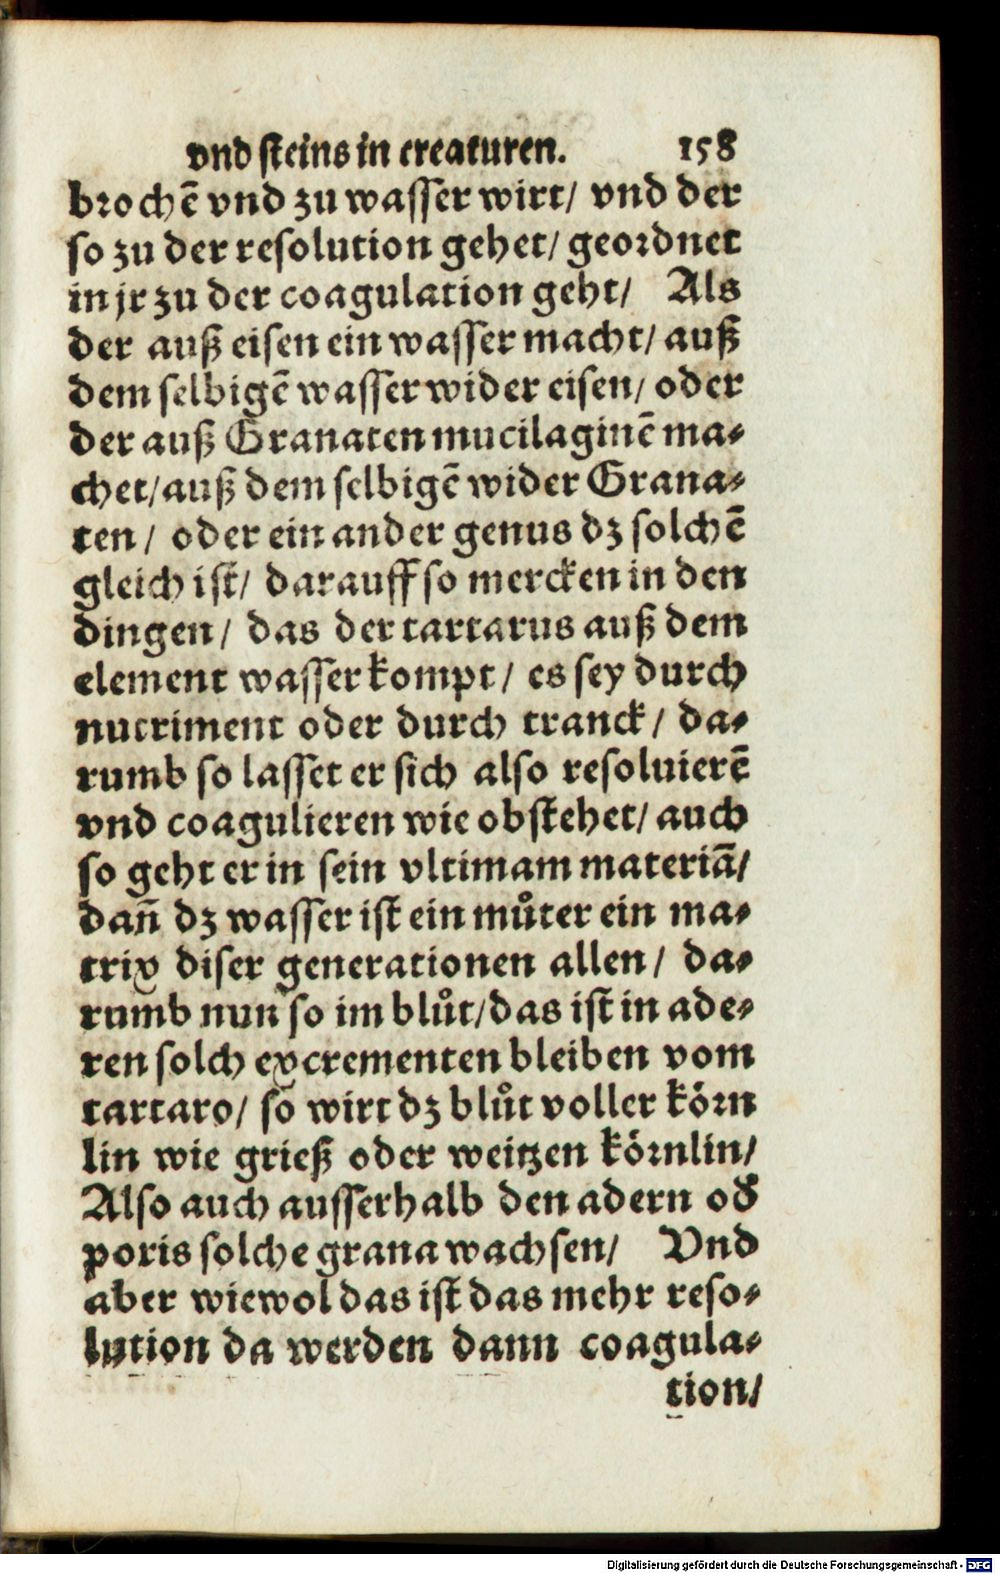 vnd steins in creaturen. 158
brochē vnd zu wasser wirt/ vnd der
so zu der resolution gehet/ geordnet
in jr zu der coagulation geht/ Als
der auß eisen ein wasser macht/ auß
dem selbigē wasser wider eisen/ oder
der auß Granaten mucilaginē ma⸗
chet/ auß dem selbigē wider Grana⸗
ten/ oder ein ander genus dz solchē
gleich ist/ darauff so mercken in den
dingen/ das der tartarus auß dem
element wasser kompt/ es sey durch
nutriment oder durch tranck/ da⸗
rumb so lasset er sich also resoluierē
vnd coagulieren wie obstehet/ auch
so geht er in sein vltimam materiā/
dañ dz wasser ist ein můter ein ma⸗
trix diser generationen allen/ da⸗
rumb nun so im blůt/ das ist in ade⸗
ren solch excrementen bleiben vom
tartaro/ so wirt dz blůt voller körn
lin wie grieß oder weitzen körnlin/
Also auch ausserhalb den adern od̕
poris solche grana wachsen/ Vnd
aber wiewol das ist das mehr reso⸗
lution da werden dann coagula⸗
tion/
Digitalisierung gefördert durch die Deutsche Forschungsgemeinschaft - DFG